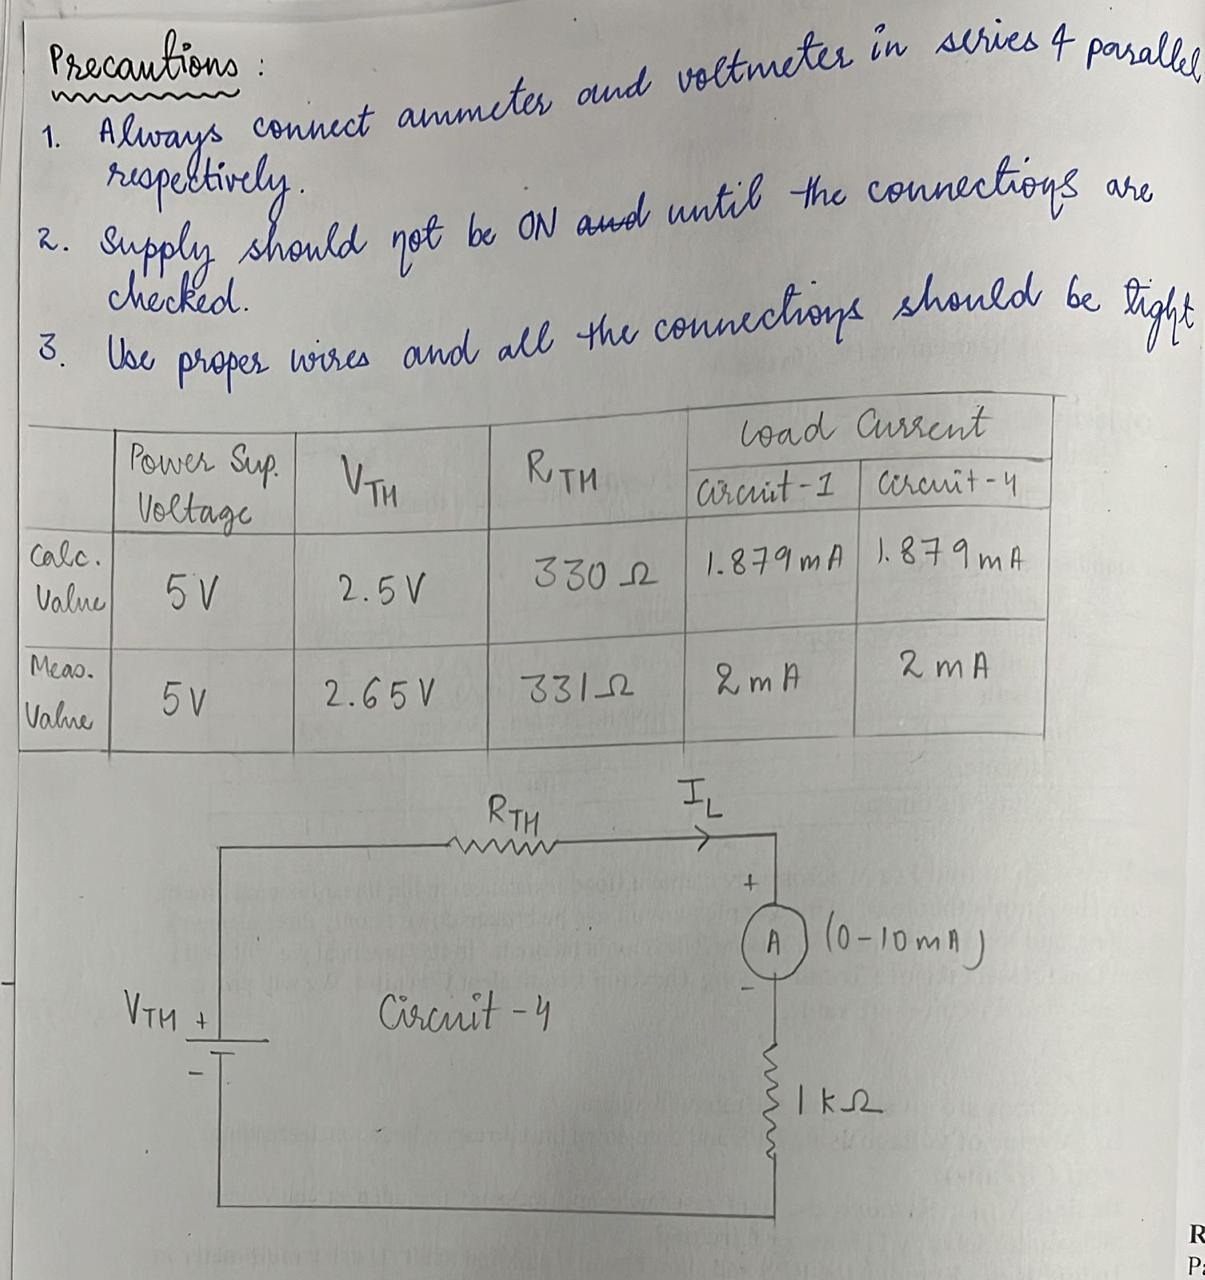 Precautions :
1. Always connect ammeter and voltmeter in series & parallel
respectively.
2. Supply should not be ON and until the connections are
checked.
3. Use proper wires and all the connections should be tight
Load Current
Power Sup. Voltage VTH RTH Circuit-1 Circuit-4
Calc. Value 5V 2.5V 330Ω 1.879mA 1.879mA
Meas. Value 5V 2.65V 331Ω 2mA 2mA
RTH IL
+
A (0-10mA)
-
VTH + Circuit-4
-
1kΩ
R
Pa